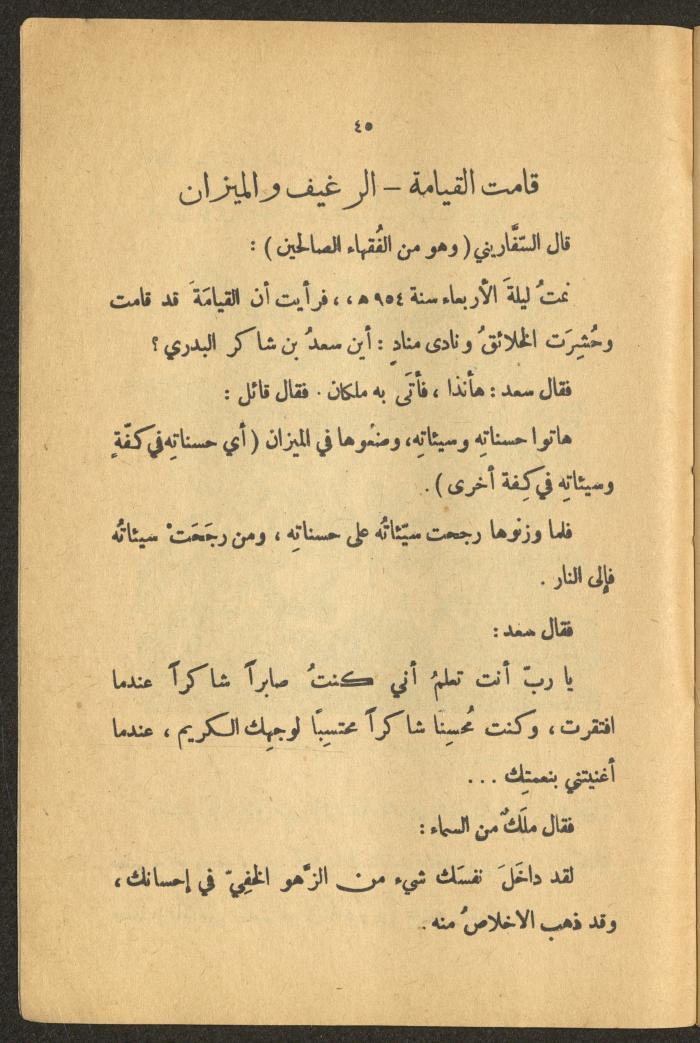 ٤٥
قامت القيامة – الرغيف والميزان
قال السّفَّاريني ( وهو من الفُقهاء الصالحين ) :
نمتُ ليلةَ الأربعاء سنة ٩٥٤ هـ ، ، فرأيت أن القيامَةَ قد قامت
وحُشِرَت الخلائقُ ونادى منادٍ : أين سعدُ بن شاكر البدري ؟
فقال سعد : هأنذا ، فأتَى به ملكان . فقال قائل :
هاتوا حسناتِه وسيئاتِه ، وضعُوها في الميزان ( أي حسناتِه في كفّةٍ
وسيئاتِه في كِفة أخرى ) .
فلما وزنوها رجحت سيّئاتُه على حسناتِه ، ومن رجَحَتْ سيئاتُه
فإلى النار .
فقال سعد :
يا ربّ أنت تعلمُ أني كنتُ صابراً شاكراً عندما
افتقرت ، وكنت مُحسِنًا شاكراً محتسِبًا لوجهِك الكريم ، عندما
أغنيتني بنعمتِك ...
فقال ملَكٌ من السماء :
لقد داخَلَ نفسَك شيء من الزَّهو الخفِيّ في إحسانك ،
وقد ذهب الاخلاصُ منه .